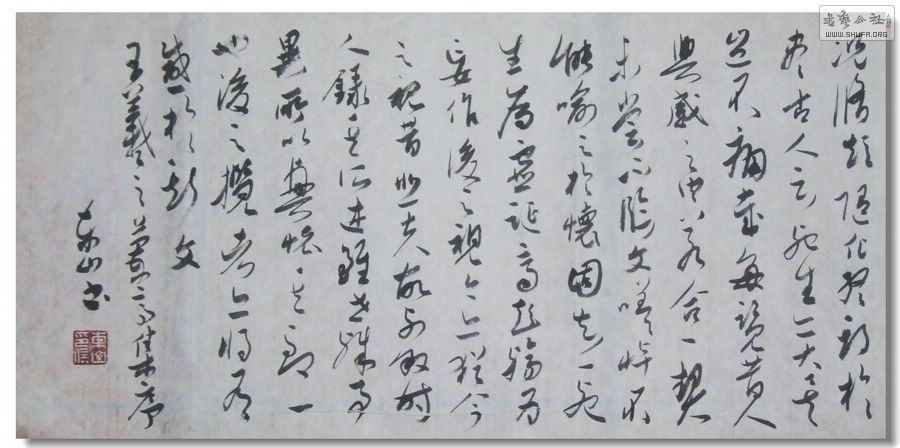 况脩短随化終期於
盡古人云死生亦大矣
豈不痛哉每覽昔人
興感之由若合一契
未嘗不臨文嗟悼不
能喻之於懷固知一死
生為虛誕齊彭殤為
妄作後之視今亦猶今
之視昔悲夫故列叙時
人錄其所述雖世殊事
異所以興懷其致一
也後之攬者亦將有
感於斯文
王羲之蘭亭集序
東山書
書藝公社
WWW.SHUFA.ORG